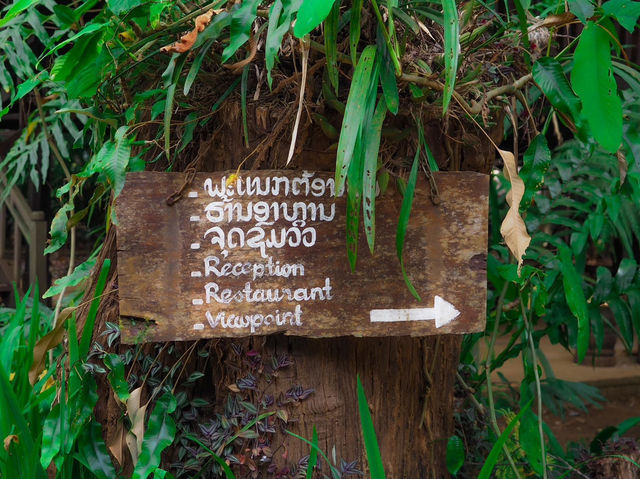 - ພະແນກຕ້ອນ
- ຮ້ານອາຫານ
- ຈຸດຊົມວິວ
- Reception
- Restaurant
- Viewpoint